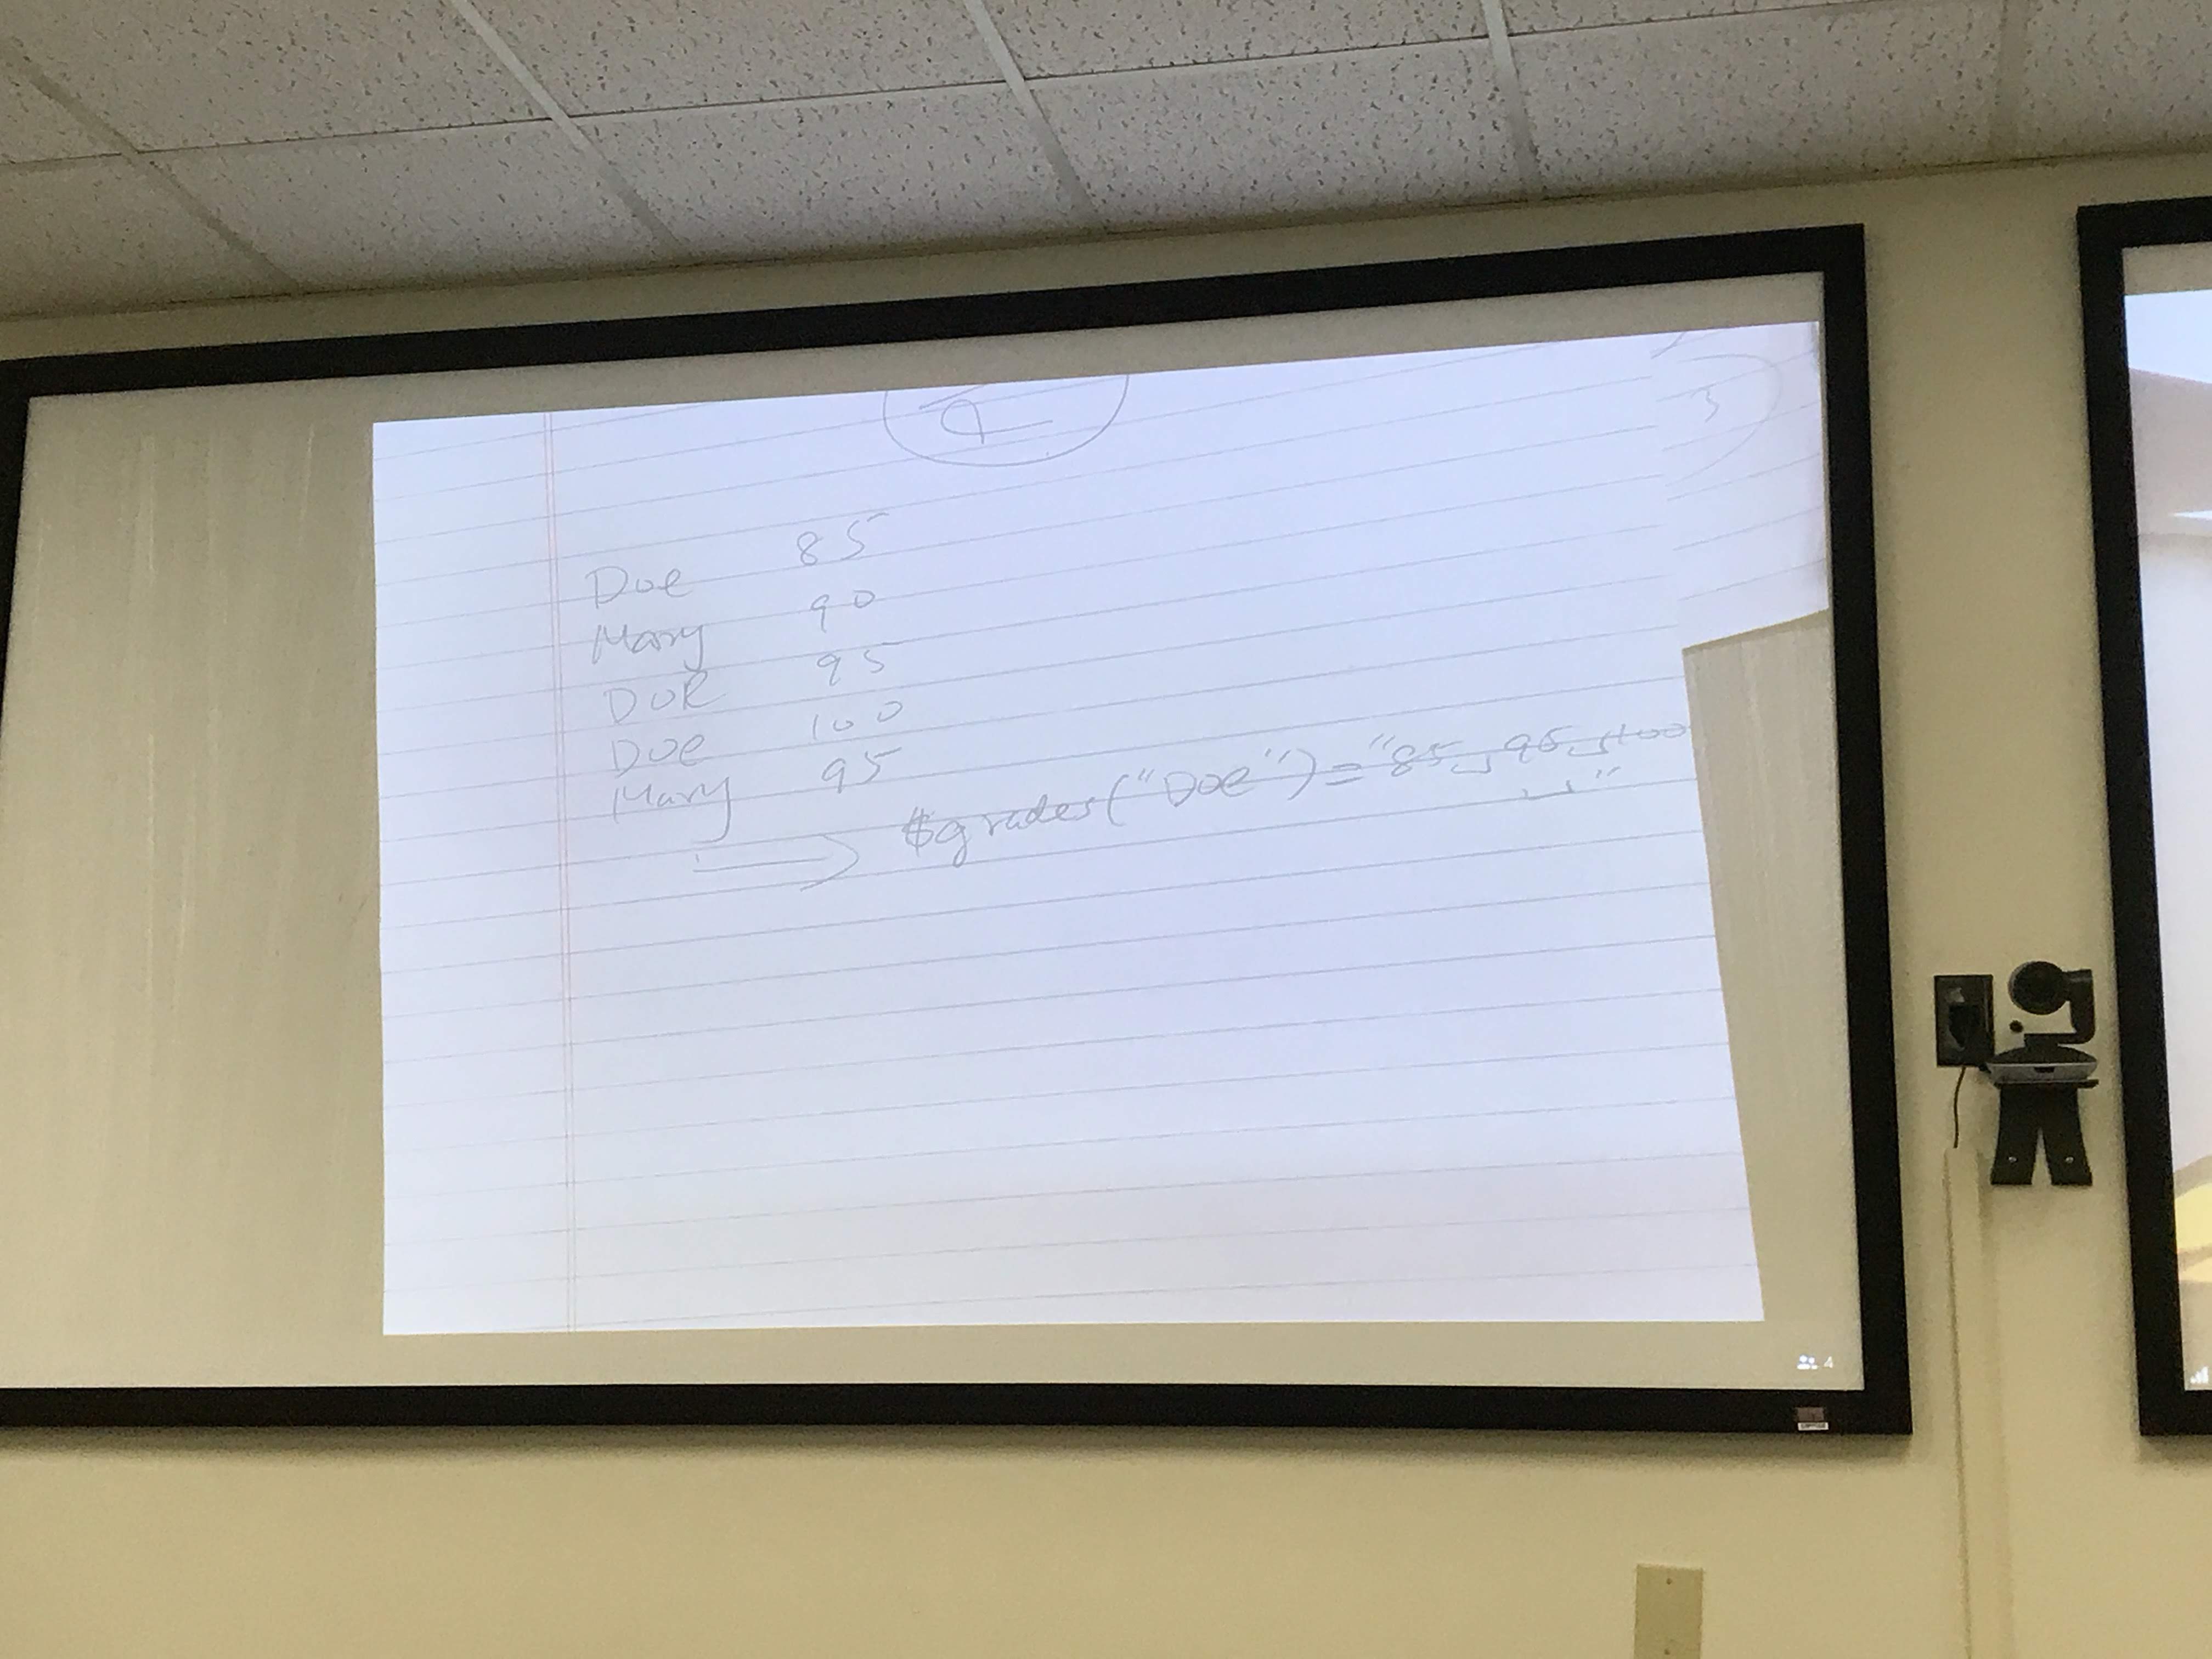 3
Doe 85
Mary 90
Doe 95
Doe 100
Mary 95
$grades("Doe") = "85␣95␣100
␣"
4